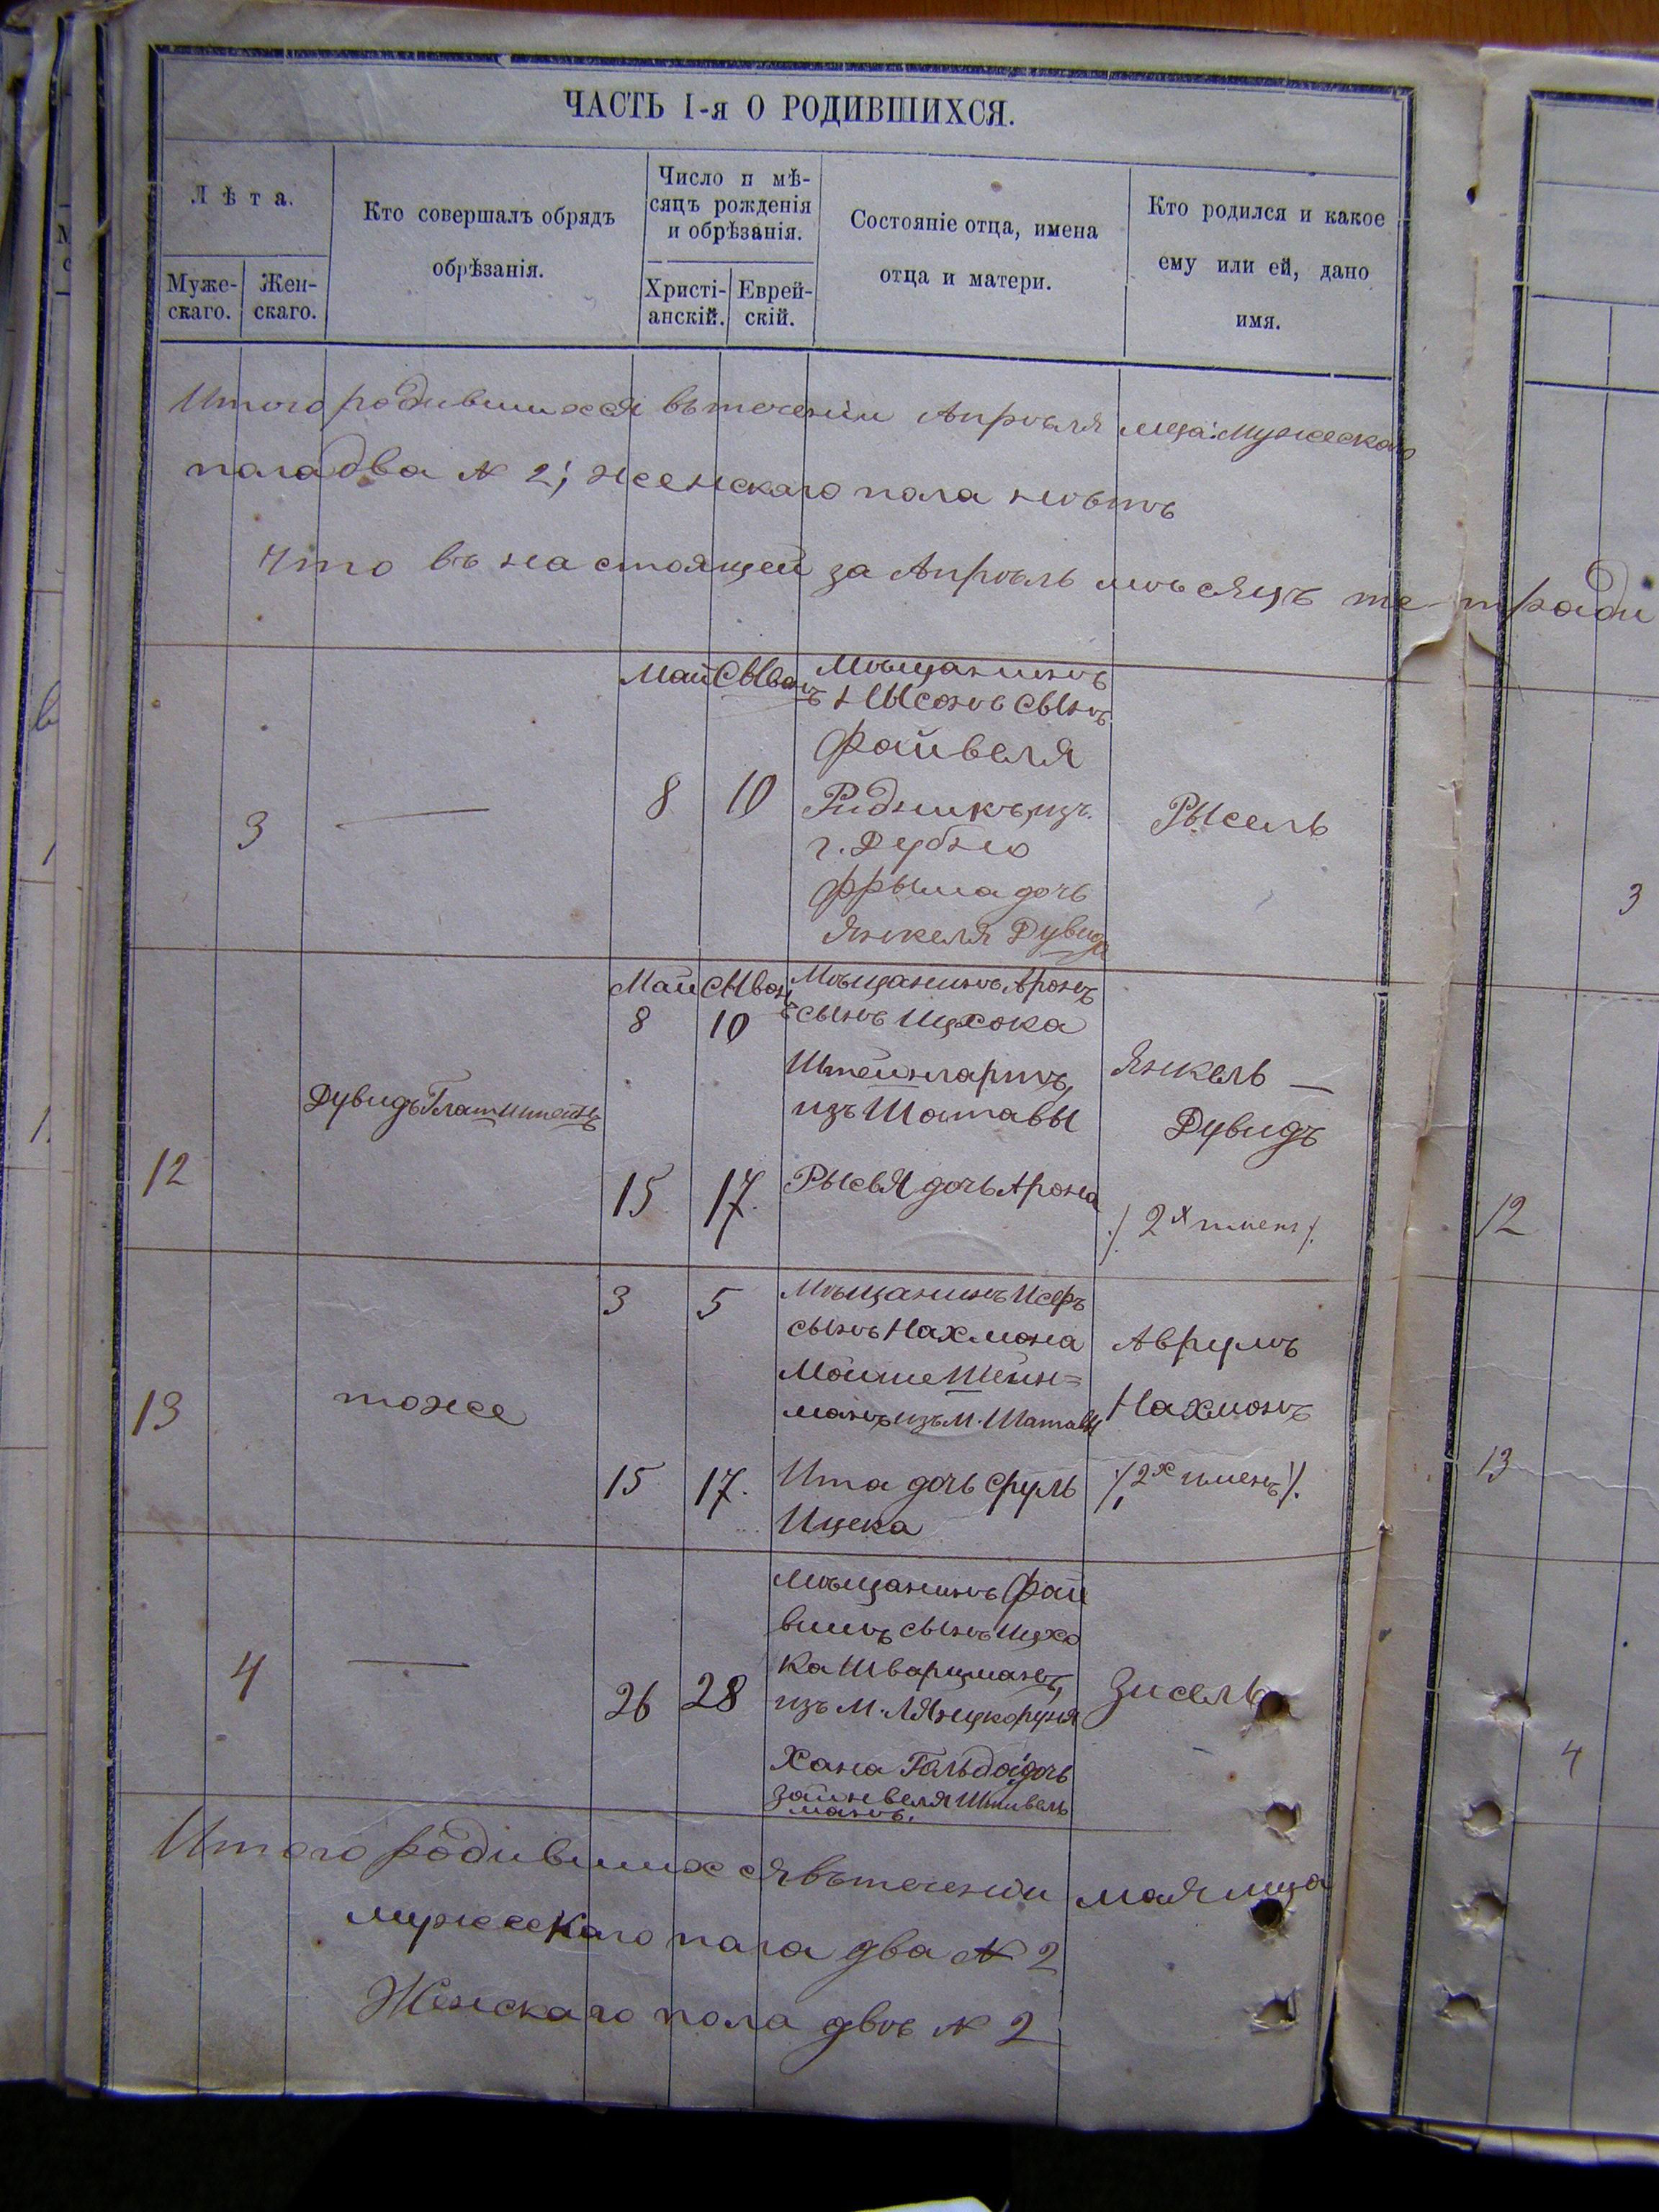 ЧАСТЬ I-я О РОДИВШИХСЯ.
Лѣта.
Муже-
скаго.
Жен-
скаго.
Кто совершалъ обрядъ
обрѣзанія.
Число и мѣ-
сяцъ рожденія
и обрѣзанія.
Христі-
анскій.
Еврей-
скій.
Состояніе отца, имена
отца и матери.
Кто родился и какое
ему или ей, дано
имя.
Итого родившихся въ теченіи Апрѣля мца: мужескаго
пола два № 2; женскаго пола нѣтъ
Что въ настоящей за Апрѣль мѣсяцъ тетради
Май Сывонъ
3 — 8 10
Мѣщанинъ
Нысонъ сынъ
Файвеля
Ридникъ, изъ
г. Дубно
Фрыма дочь
Янкеля Дувида
Рысель
3
Май Сывонъ
8 10
12
Дувидъ Глатштейнъ
15 17.
Мѣщанинъ Аронъ
сынъ Ицхока
Штейнгартъ,
изъ Шатавы
Рысья дочь Арона
Янкель —
Дувидъ
/. 2х именъ /.
12
3 5
13
тоже
15 17.
Мѣщанинъ Исеръ
сынъ Нахмона
Мойше Шейн=
манъ изъ м. Шатавы
Ита дочь Сруль
Ицека
Аврумъ
Нахмонъ
/. 2х именъ /.
13
4 — 26 28
Мѣщанинъ Фай
вишъ сынъ Ицхо
ка Шварцманъ,
изъ м. Лянцкоруня
Хана Гольда дочь
Зайнвеля Шпивель
манъ.
Зисель
4
Итого родившихся въ теченіи мая мца
мужескаго пола два № 2
Женскаго пола двѣ № 2